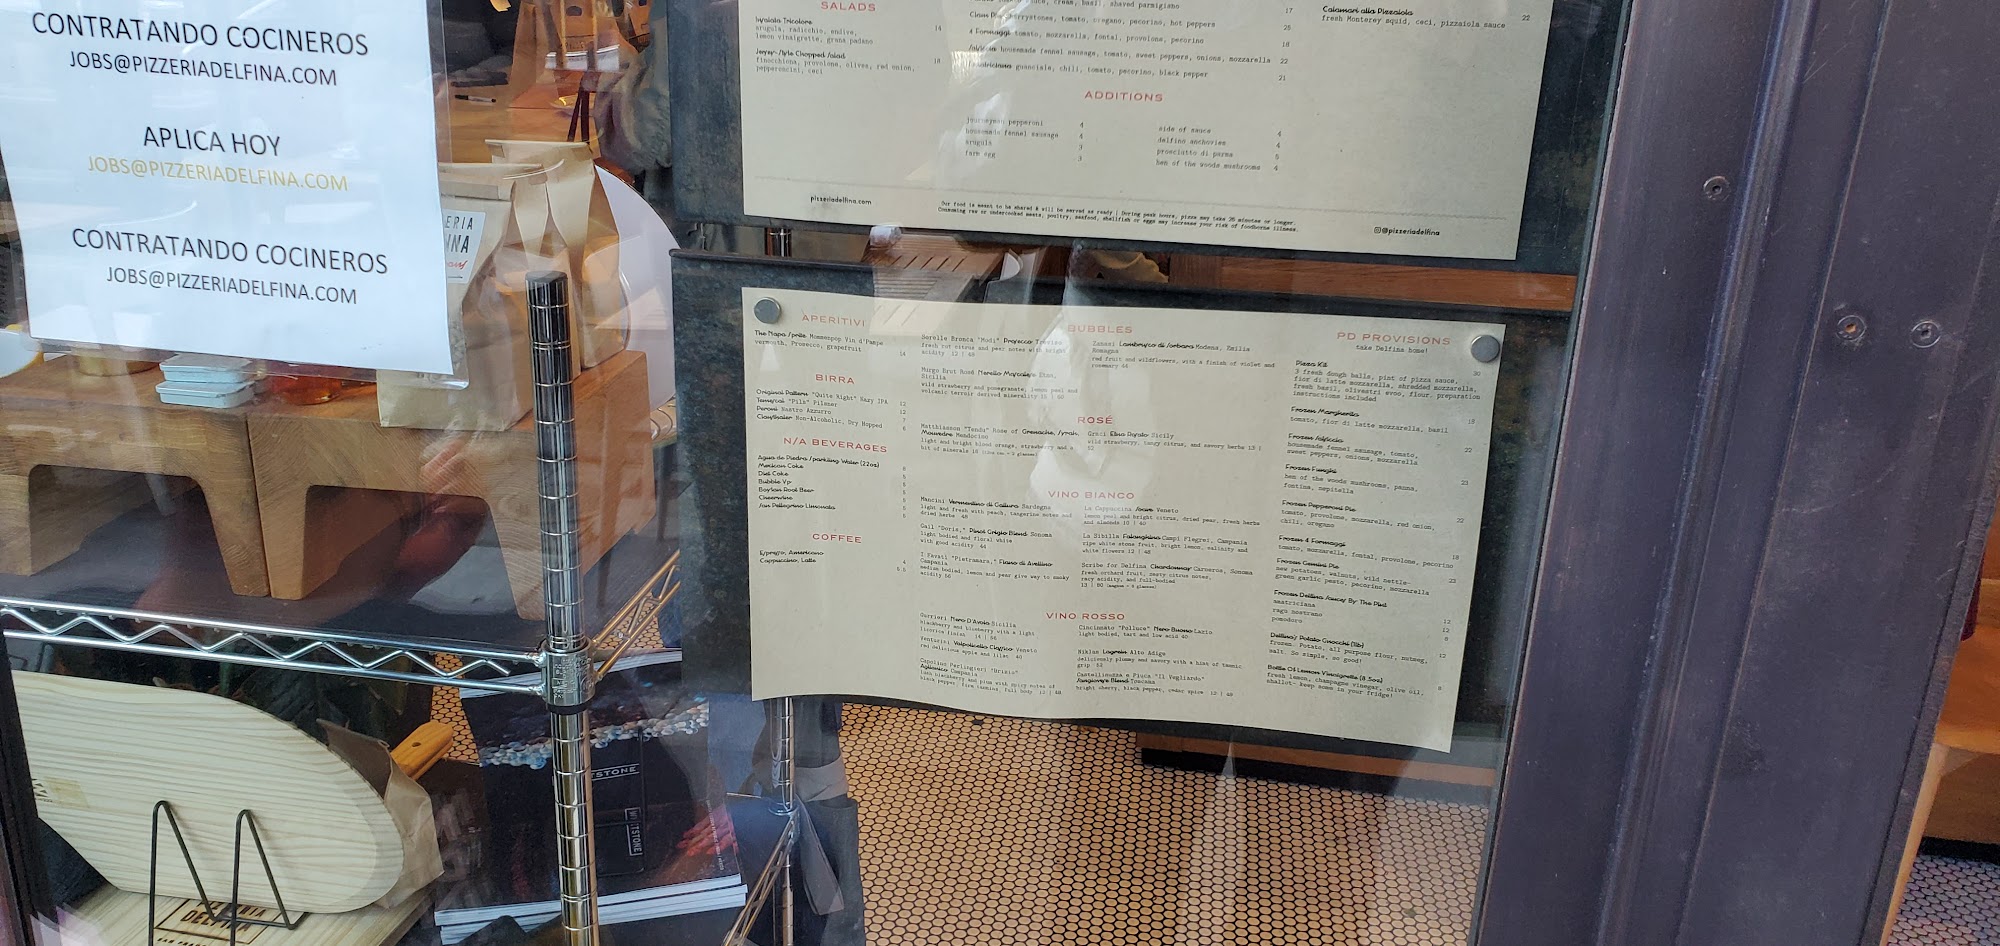 CONTRATANDO COCINEROS
JOBS@PIZZERIADELFINA.COM
APLICA HOY
JOBS@PIZZERIADELFINA.COM
CONTRATANDO COCINEROS
JOBS@PIZZERIADELFINA.COM
SALADS
Insalata Tricolore
arugula, radicchio, endive,
lemon vinaigrette, grana padano
14
Jersey-Style Chopped Salad
finocchiona, provolone, olives, red onion,
pepperoncini, ceci
18
sauce, cream, basil, shaved parmigiano
17
Clam Pie cherrystones, tomato, oregano, pecorino, hot peppers
25
4 Formaggi tomato, mozzarella, fontal, provolone, pecorino
18
Salsiccia housemade fennel sausage, tomato, sweet peppers, onions, mozzarella
22
Amatriciana guanciale, chili, tomato, pecorino, black pepper
21
Calamari alla Pizzaiola
fresh Monterey squid, ceci, pizzaiola sauce
22
ADDITIONS
journeyman pepperoni 4
housemade fennel sausage 4
arugula 3
farm egg 3
side of sauce 4
delfina anchovies 4
prosciutto di parma 5
hen of the woods mushrooms 4
pizzeriadelfina.com
Our food is meant to be shared & will be served as ready | During peak hours, pizza may take 25 minutes or longer.
Consuming raw or undercooked meats, poultry, seafood, shellfish or eggs may increase your risk of foodborne illness.
@pizzeriadelfina
APERITIVI
The Napa Spritz Mommenpop Vin d'Pampe
vermouth, Prosecco, grapefruit
14
BIRRA
Original Pattern "Quite Right" Hazy IPA 12
Temescal "Pils" Pilsner 12
Peroni Nastro Azzurro 7
Clausthaler Non-Alcoholic, Dry Hopped 6
N/A BEVERAGES
Agua de Piedra Sparkling Water (22oz) 8
Mexican Coke 5
Diet Coke 5
Bubble Up 5
Boylan Root Beer 5
Cheerwine 5
San Pellegrino Limonata 5
COFFEE
Espresso, Americano 4
Cappuccino, Latte 5.5
BUBBLES
Sorelle Bronca "Modi" Prosecco Treviso
fresh cut citrus and pear notes with bright
acidity 12 | 48
Murgo Brut Rosé Nerello Mascalese Etna,
Sicilia
wild strawberry and pomegranate, lemon peel and
volcanic terroir derived minerality 15 | 60
Zanasi Lambrusco di Sorbara Modena, Emilia
Romagna
red fruit and wildflowers, with a finish of violet and
rosemary 44
ROSÉ
Matthiasson "Tendu" Rose of Grenache, Syrah,
Mourvedre Mendocino
light and bright blood orange, strawberry and a
bit of minerals 16
Graci Etna Rosato Sicily
wild strawberry, tangy citrus, and savory herbs 13 |
52
VINO BIANCO
Mancini Vermentino di Gallura Sardegna
light and fresh with peach, tangerine notes and
dried herbs 48
Gail "Doris," Pinot Grigio Blend Sonoma
light bodied and floral white
with good acidity 44
I Favati "Pietramara," Fiano di Avellino
Campania
medium bodied, lemon and pear give way to smoky
acidity 56
La Cappuccina Soave Veneto
lemon peel and bright citrus, dried pear, fresh herbs
and almonds 10 | 40
La Sibilla Falanghina Campi Flegrei, Campania
ripe white stone fruit, bright lemon, salinity and
white flowers 12 | 48
Scribe for Delfina Chardonnay Carneros, Sonoma
fresh orchard fruit, zesty citrus notes,
racy acidity, and full-bodied
VINO ROSSO
Gurrieri Nero D'Avola Sicilia
blackberry and blueberry with a light
licorice finish 14 | 56
Venturini Valpolicella Classico Veneto
red delicious apple and lilac 40
Capolino Perlingieri "Brizio"
Aglianico Campania
lush blackberry and plum with spicy notes of
black pepper, firm tannins, full body 12 | 48
Cincinnato "Polluce" Nero Buono Lazio
light bodied, tart and low acid 40
Niklas Lagrein Alto Adige
deliciously plummy and savory with a hint of tannic
grip 52
Castellinuzza e Piuca "Il Vegliardo"
Sangiovese Blend Toscana
bright cherry, black pepper, cedar spice 12 | 48
PD PROVISIONS
take Delfina home!
Pizza Kit 30
3 fresh dough balls, pint of pizza sauce,
fior di latte mozzarella, shredded mozzarella,
fresh basil, olivestri evoo, flour, preparation
instructions included
Frozen Margherita
tomato, fior di latte mozzarella, basil 18
Frozen Salsiccia
housemade fennel sausage, tomato,
sweet peppers, onions, mozzarella 22
Frozen Funghi
hen of the woods mushrooms, panna,
fontina, nepitella 23
Frozen Pepperoni Pie
tomato, provolone, mozzarella, red onion,
chili, oregano 22
Frozen 4 Formaggi
tomato, mozzarella, fontal, provolone, pecorino 18
Frozen Gemini Pie
new potatoes, walnuts, wild nettle-
green garlic pesto, pecorino, mozzarella 23
Frozen Delfina Sauces By The Pint
amatriciana 12
ragu nostrano 12
pomodoro 8
Delfina's Potato Gnocchi (1lb)
frozen. Potato, all purpose flour, nutmeg,
salt. So simple, so good! 12
Bottle Of Lemon Vinaigrette (8.5oz)
fresh lemon, champagne vinegar, olive oil,
shallot- keep some in your fridge! 8
WHETSTONE
DELFINA